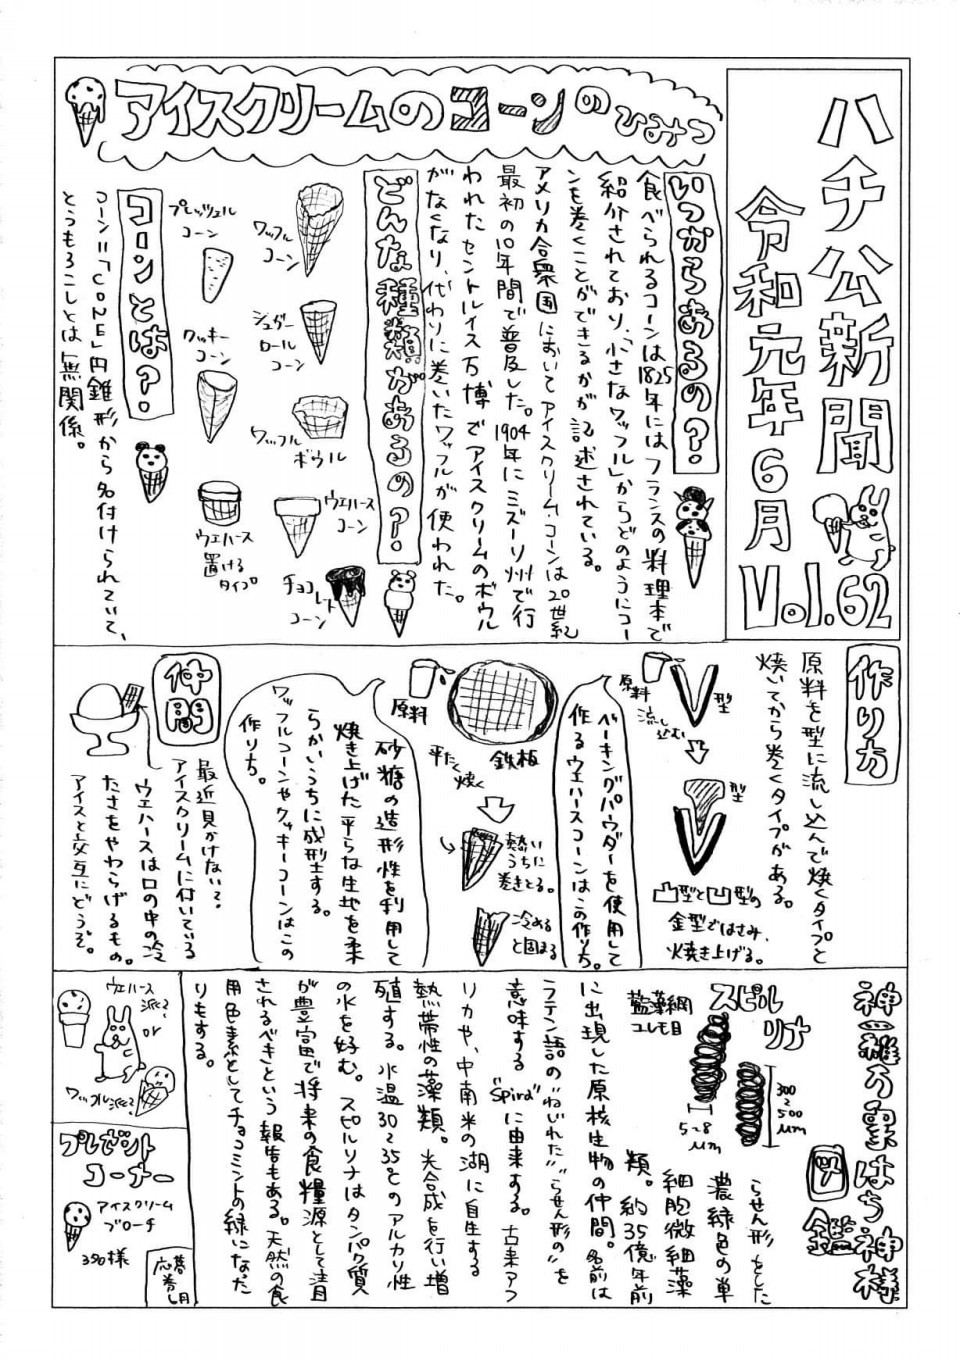 ハチ公新聞
令和元年6月
Vol.62
アイスクリームのコーンのひみつ
いつからあるの?
食べられるコーンは1825年にはフランスの料理本で
紹介されており、「小さなワッフル」からどのようにコー
ンを巻くことができるかが記述されている。
アメリカ合衆国においてアイスクリームコーンは20世紀
最初の10年間で普及した。1904年にミズーリ州で行
われたセントルイス万博でアイスクリームのボウル
がなくなり、代わりに巻いたワッフルが使われた。
どんな種類があるの?
ワッフル
コーン
シュガー
ロール
コーン
ワッフル
ボウル
ウエハース
コーン
チョコ
レート
コーン
プレッツェル
コーン
クッキー
コーン
ウエハース
置ける
タイプ
コーンとは?
コーン=「CONE」円錐形から名付けられていて、
とうもろこしとは無関係。
作り方
原料を型に流し込んで焼くタイプと
焼いてから巻くタイプがある。
原料
流し
込む
型
型
凸型と凹型の
金型ではさみ、
火焼き上げる。
ベーキングパウダーを使用して
作るウエハースコーンはこの作り方。
原料
鉄板
平たく
焼く
熱い
うちに
巻きとる。
冷める
と固まる
砂糖の造形性を利用して
焼き上げた平らな生地を柔
らかいうちに成型する。
ワッフルコーンやクッキーコーンはこの
作り方。
仲間
最近見かけない?
アイスクリームに付いている
ウエハースは口の中の冷
たさをやわらげるもの。
アイスと交互にどうぞ。
神・雑万異はち神様
図鑑
スピル
リナ
藍藻綱
ユレモ目
300
~
500
μm
5~8
μm
らせん形をした
濃緑色の単
細胞微細藻
類。約35億年前
に出現した原核生物の仲間。名前は
ラテン語の"ねじれた""らせん形の"を
意味する"Spira"に由来する。古来アフ
リカや、中南米の湖に自生する
熱帯性の藻類。光合成を行い増
殖する。水温30~35℃のアルカリ性
の水を好む。スピルリナはタンパク質
が豊富で将来の食糧源として注目
されるべきという報告もある。天然の食
用色素としてチョコミントの緑になった
りもする。
ウエハース
派?
or
ワッフル派?
プレゼント
コーナー
アイスクリーム
ブローチ
350様
応募
券
6月